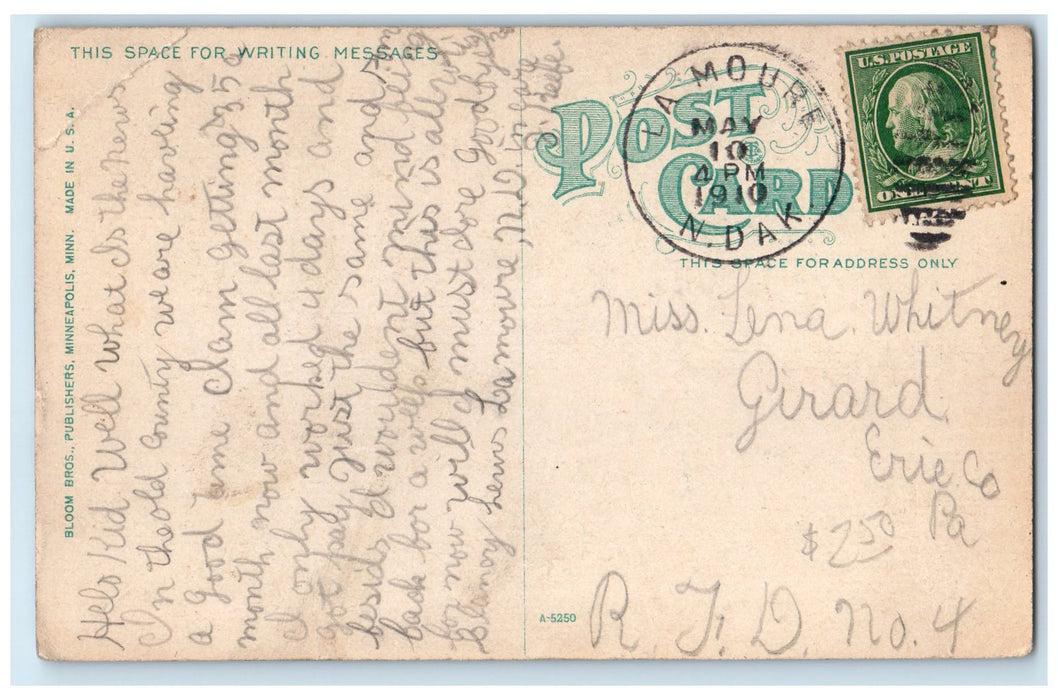 THIS SPACE FOR WRITING MESSAGES
BLOOM BROS., PUBLISHERS, MINNEAPOLIS, MINN. MADE IN U.S.A.
Helo Kid Well what Is the news
In the old county we are having
a good time I am getting 35 a
month now and all last month
I only worked 4 days and
got pay just the same and
besids I wouldent mind being
back for a wee but this is all
for now will I must dore goodby
Lewis Lamoure N.D
POST CARD
LA MOURE
MAY
10
4 PM
1910
N. DAK.
U.S. POSTAGE
ONE CENT
THIS SPACE FOR ADDRESS ONLY
Miss. Lena. Whitney
Girard
Erie. Co
Pa
$2.50
R. F. D. No. 4
A-5250